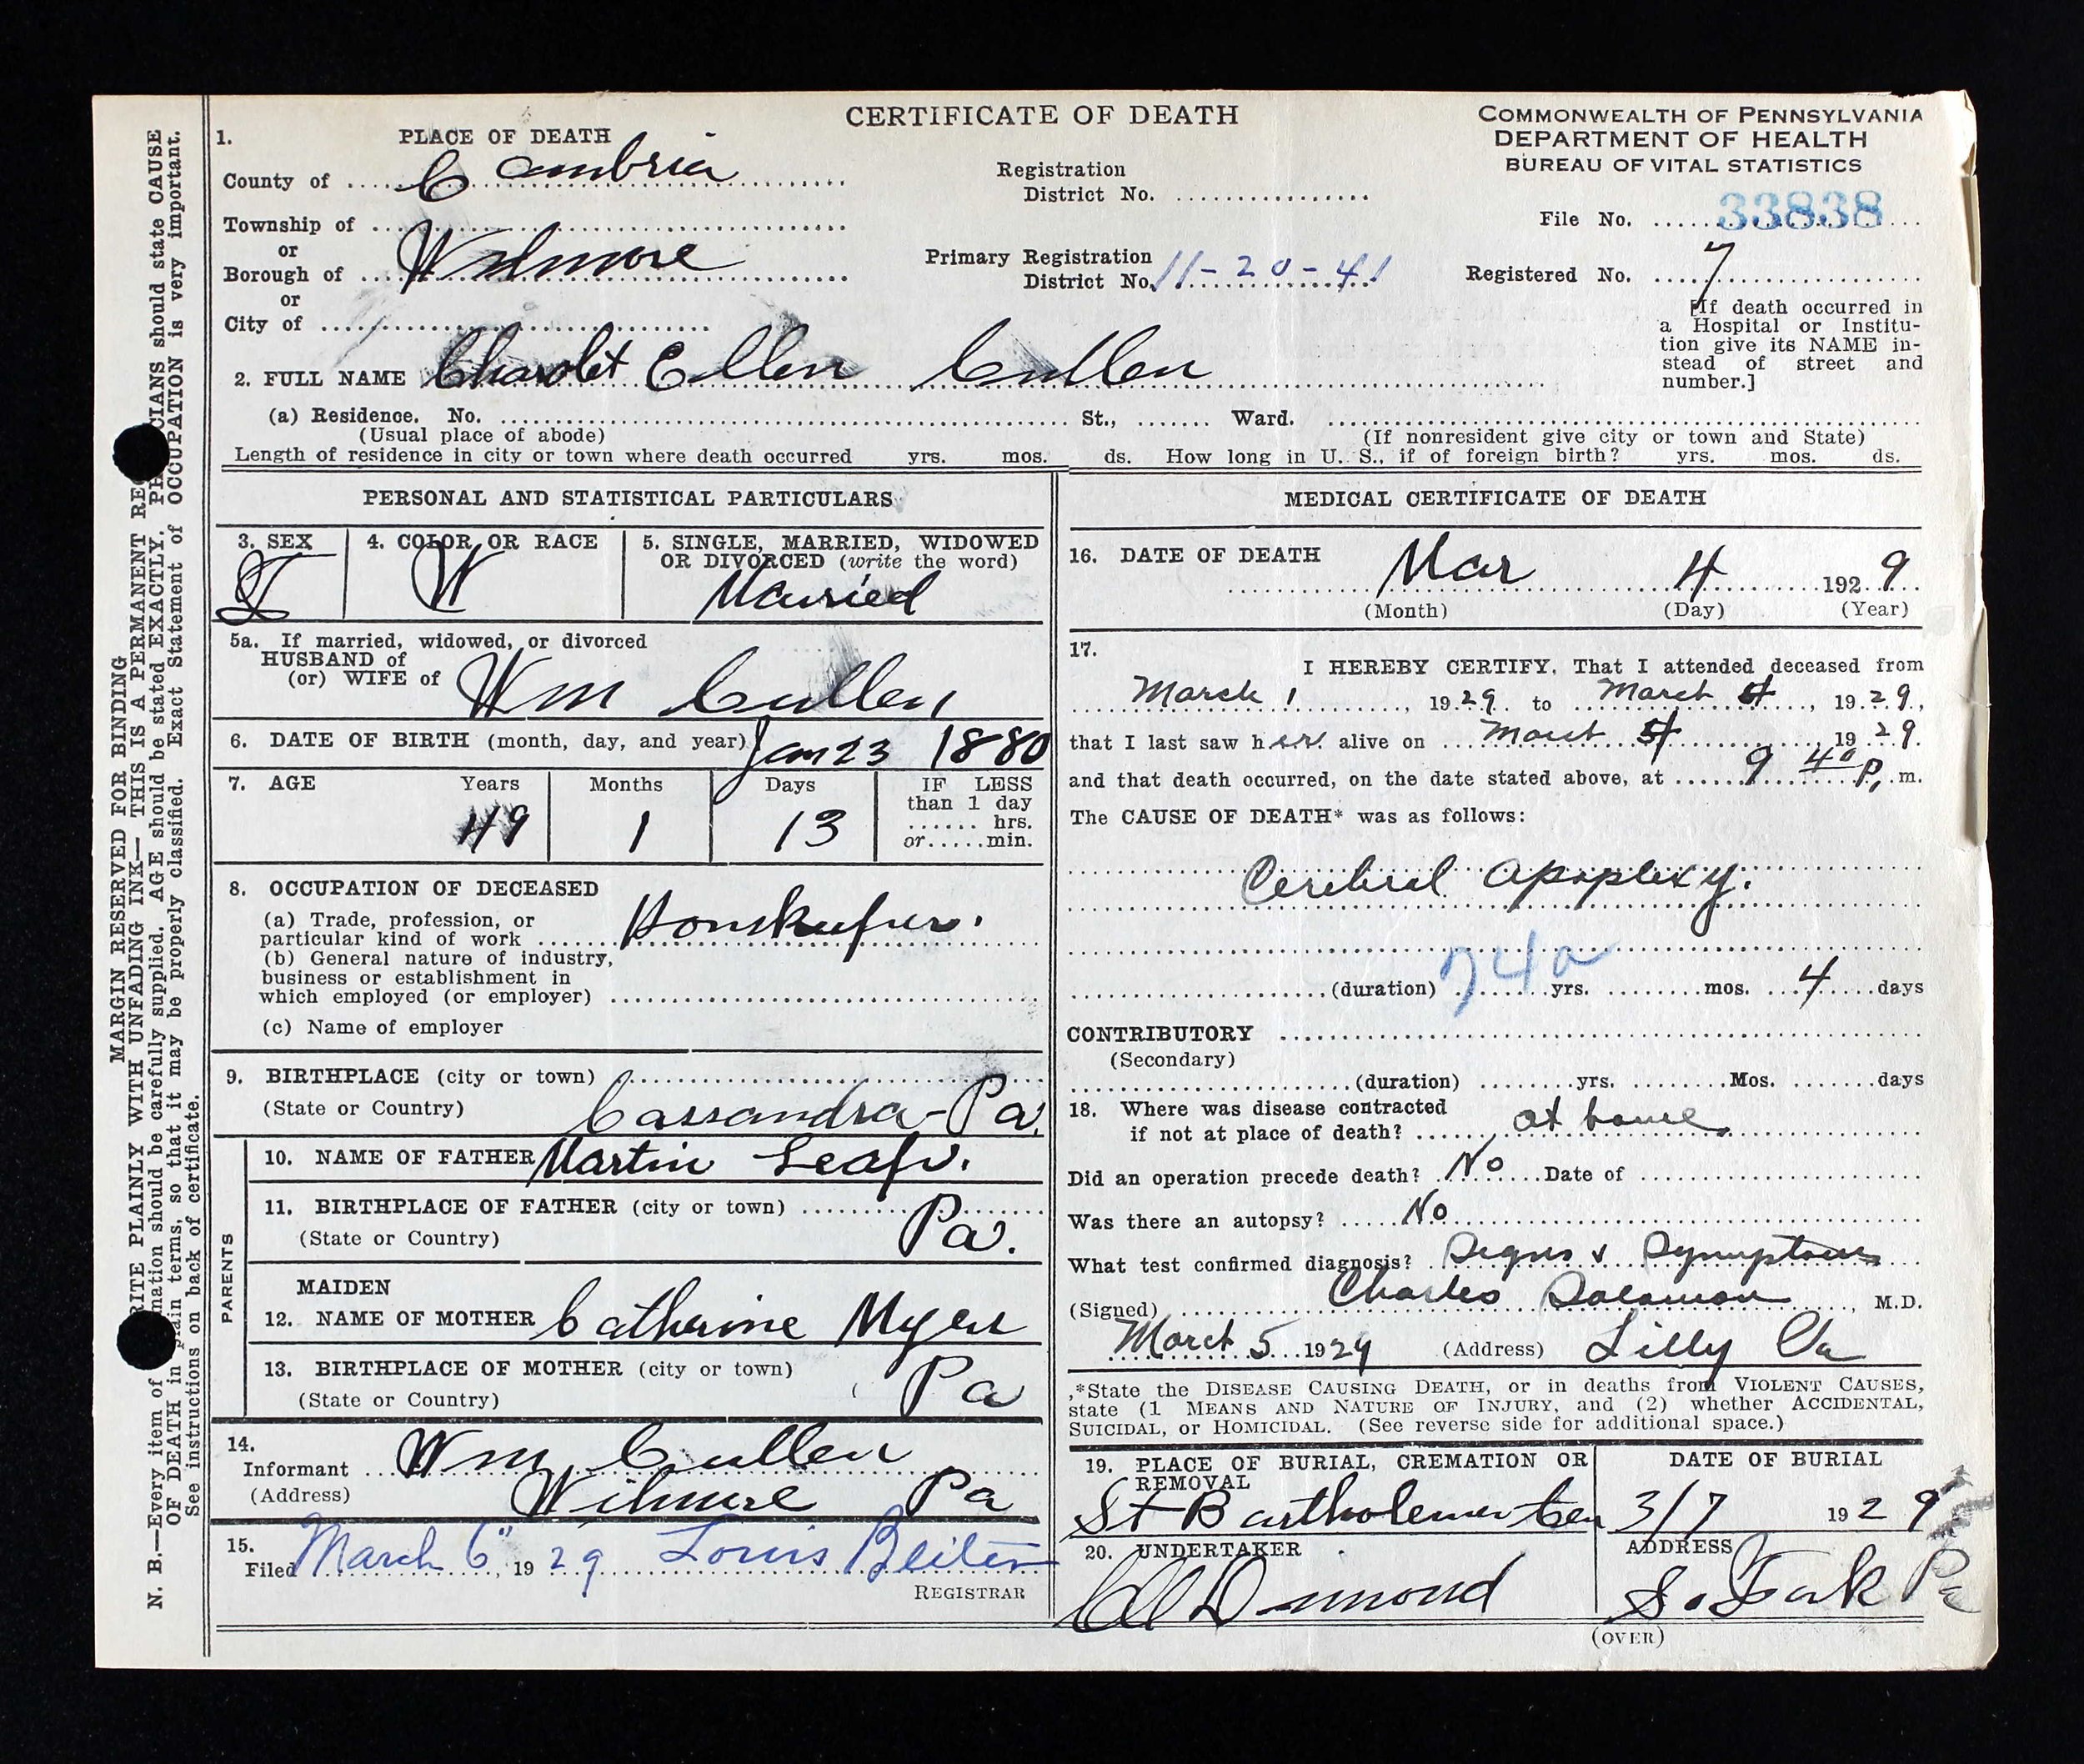 CERTIFICATE OF DEATH
COMMONWEALTH OF PENNSYLVANIA
DEPARTMENT OF HEALTH
BUREAU OF VITAL STATISTICS
1. PLACE OF DEATH
County of Cambria
Registration
District No.
File No. 33838
Township of
or
Borough of Wilmore
Primary Registration
District No. 11-20-41
Registered No. 7
or
City of
[If death occurred in
a Hospital or Institu-
tion give its NAME in-
stead of street and
number.]
2. FULL NAME Charolet Ellen Cullen
(a) Residence. No. St., Ward.
(Usual place of abode) (If nonresident give city or town and State)
Length of residence in city or town where death occurred yrs. mos. ds. How long in U. S., if of foreign birth? yrs. mos. ds.
PERSONAL AND STATISTICAL PARTICULARS
3. SEX
4. COLOR OR RACE
W
5. SINGLE, MARRIED, WIDOWED
OR DIVORCED (write the word)
Married
5a. If married, widowed, or divorced
HUSBAND of
(or) WIFE of Wm Cullen
6. DATE OF BIRTH (month, day, and year) Jan 23 1880
7. AGE Years Months Days
49 1 13
IF LESS
than 1 day
hrs.
or min.
8. OCCUPATION OF DECEASED
(a) Trade, profession, or
particular kind of work
(b) General nature of industry,
business or establishment in
which employed (or employer)
(c) Name of employer
9. BIRTHPLACE (city or town)
(State or Country) Cassandra - Pa.
PARENTS
10. NAME OF FATHER Martin
11. BIRTHPLACE OF FATHER (city or town)
(State or Country) Pa.
MAIDEN
12. NAME OF MOTHER Catherine Myers
13. BIRTHPLACE OF MOTHER (city or town)
(State or Country) Pa
14.
Informant Wm Cullen
(Address) Wilmore Pa
15.
Filed March 6", 1929 Louis Beiter
REGISTRAR
MEDICAL CERTIFICATE OF DEATH
16. DATE OF DEATH Mar 4 1929
(Month) (Day) (Year)
17.
I HEREBY CERTIFY, That I attended deceased from
March 1, 1929 to March 4, 1929,
that I last saw her alive on March 4 1929.
and that death occurred, on the date stated above, at 9 40 P. m.
The CAUSE OF DEATH* was as follows:
Cerebral Apoplexy.
74a
(duration) yrs. mos. 4 days
CONTRIBUTORY
(Secondary)
(duration) yrs. Mos. days
18. Where was disease contracted
if not at place of death? at home
Did an operation precede death? No Date of
Was there an autopsy? No
What test confirmed diagnosis? Signs & Symptoms
(Signed) Charles Salamon, M.D.
March 5 1929 (Address) Lilly Pa
*State the DISEASE CAUSING DEATH, or in deaths from VIOLENT CAUSES,
state (1 MEANS AND NATURE OF INJURY, and (2) whether ACCIDENTAL,
SUICIDAL, or HOMICIDAL. (See reverse side for additional space.)
19. PLACE OF BURIAL, CREMATION OR
REMOVAL
St Bartholemew Cem
DATE OF BURIAL
3/7 1929
20. UNDERTAKER
ADDRESS
So Fork Pa
(OVER)
MARGIN RESERVED FOR BINDING
RITE PLAINLY WITH UNFADING INK—THIS IS A PERMANENT REC
N. B.—Every item of mation should be carefully supplied. AGE should be stated EXACTLY. PHYSICIANS should state CAUSE
OF DEATH in plain terms, so that it may be properly classified. Exact Statement of OCCUPATION is very important.
See instructions on back of certificate.